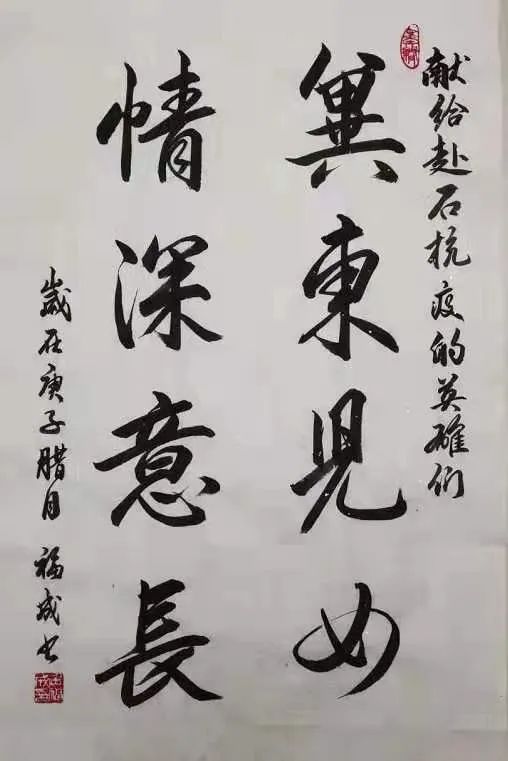 献给赴石抗疫的英雄们
冀東兒女
情深意長
歲在庚子腊月 福成书